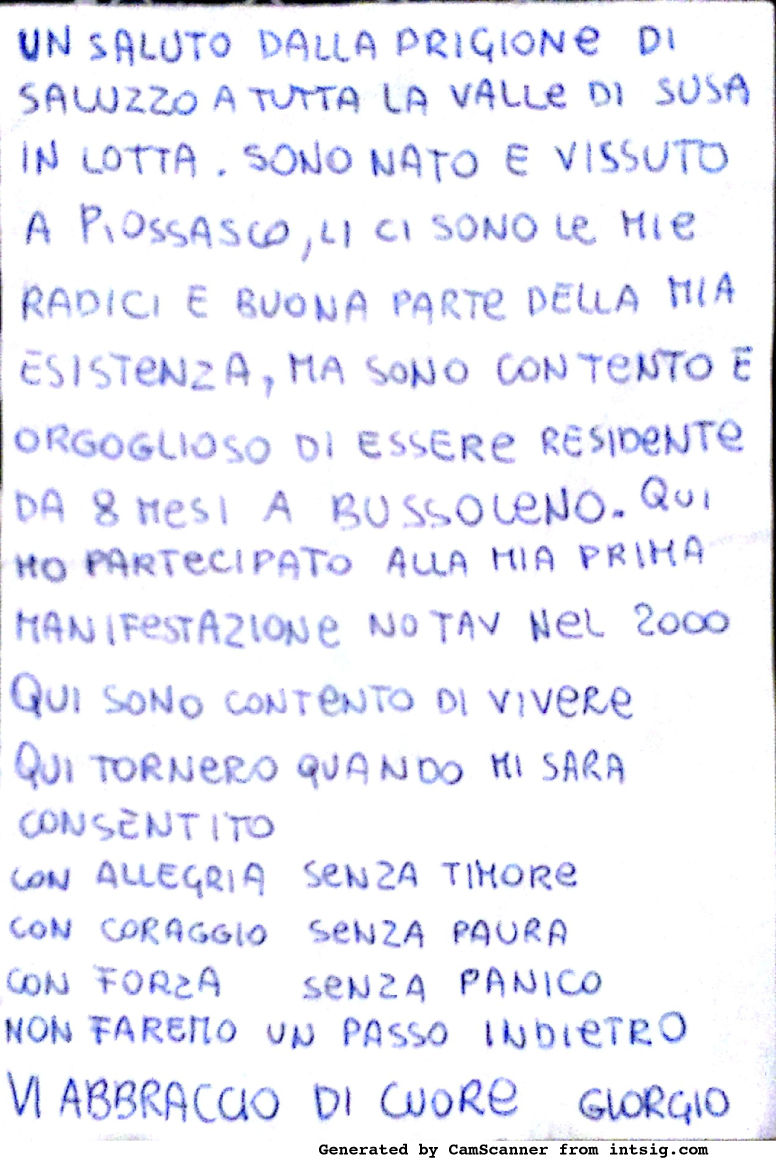 UN SALUTO DALLA PRIGIONE DI
SALUZZO A TUTTA LA VALLE DI SUSA
IN LOTTA. SONO NATO E VISSUTO
A PIOSSASCO, LI CI SONO LE MIE
RADICI E BUONA PARTE DELLA MIA
ESISTENZA, MA SONO CONTENTO E
ORGOGLIOSO DI ESSERE RESIDENTE
DA 8 MESI A BUSSOLENO. QUI
HO PARTECIPATO ALLA MIA PRIMA
MANIFESTAZIONE NO TAV NEL 2000
QUI SONO CONTENTO DI VIVERE
QUI TORNERO QUANDO MI SARA
CONSENTITO
CON ALLEGRIA SENZA TIMORE
CON CORAGGIO SENZA PAURA
CON FORZA SENZA PANICO
NON FAREMO UN PASSO INDIETRO
VI ABBRACCIO DI CUORE GIORGIO
Generated by CamScanner from intsig.com